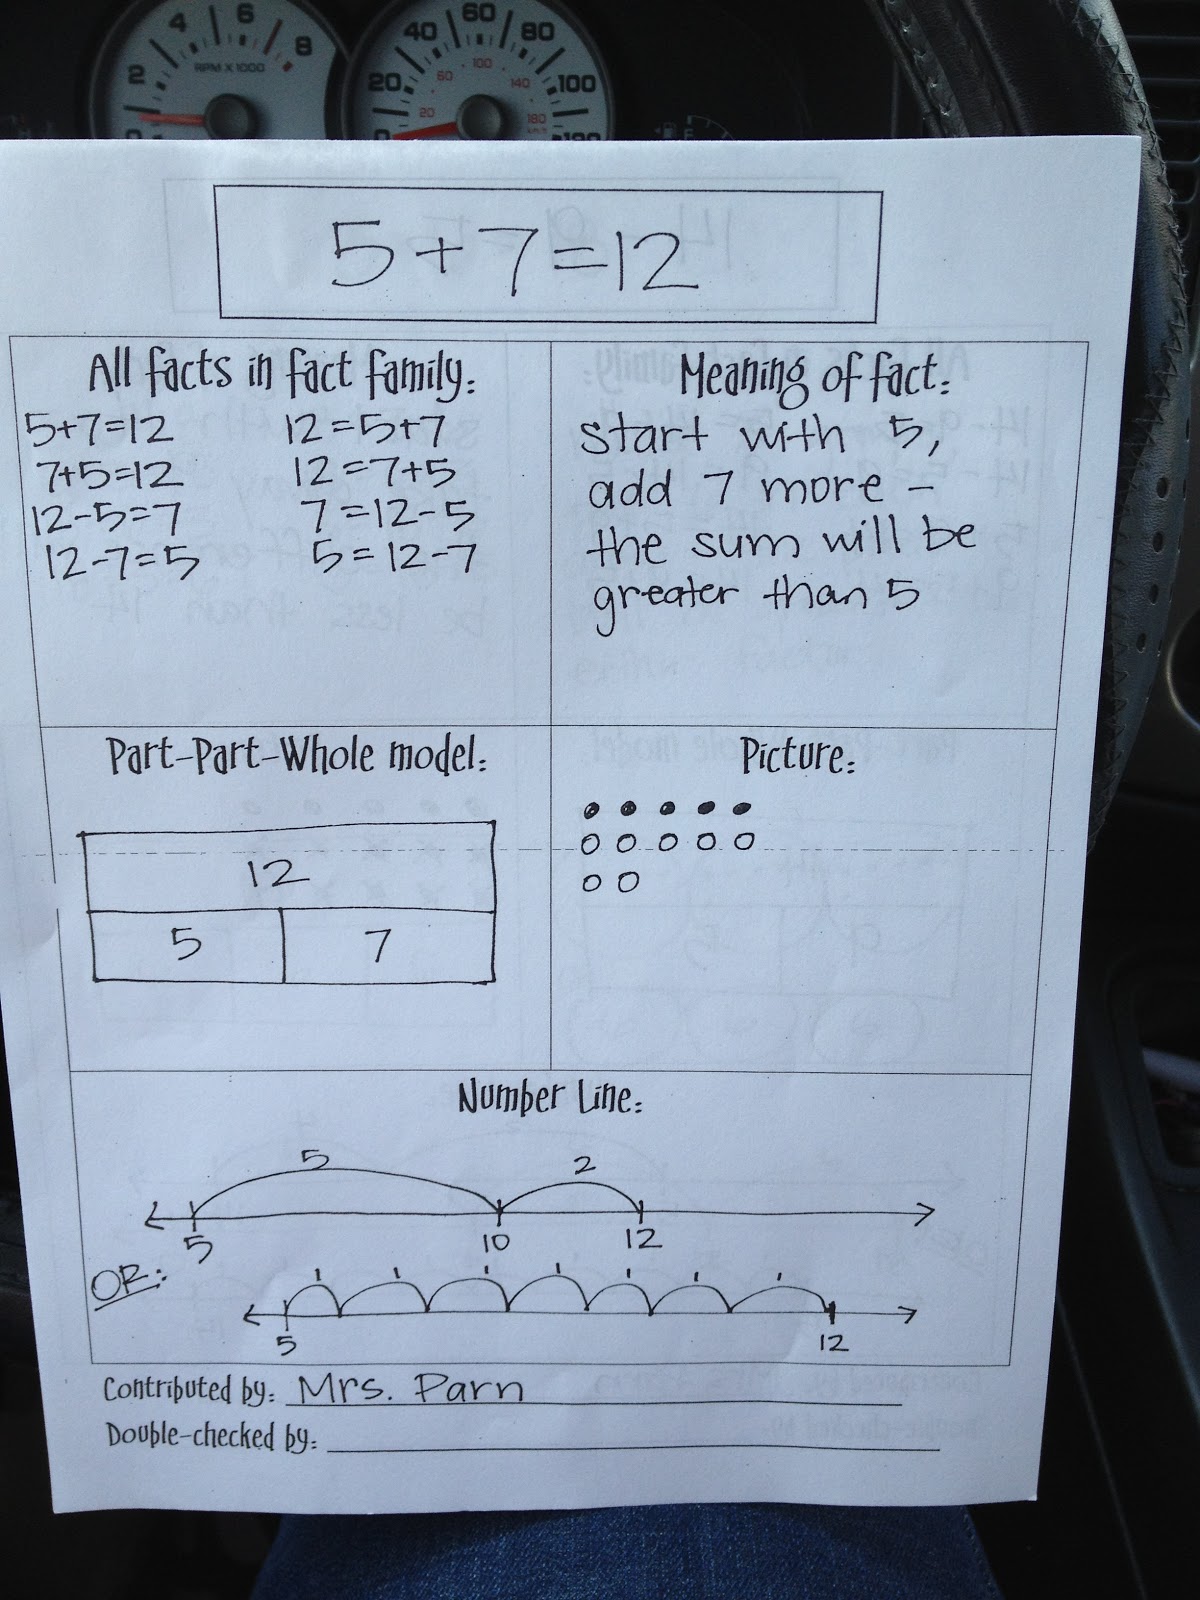 2 4 6 8
RPM X 1000
0
20 40 60 80 100 120
20 60 100 140 180
km/h
0
F
5+7=12
All facts in fact family:
5+7=12 12=5+7
7+5=12 12=7+5
12-5=7 7=12-5
12-7=5 5=12-7
Meaning of fact:
start with 5,
add 7 more –
the sum will be
greater than 5
Part-Part-Whole model:
12
5 7
Picture:
Number Line:
5 2
5 10 12
OR:
1 1 1 1 1 1 1
5 12
Contributed by: Mrs. Parn
Double-checked by: